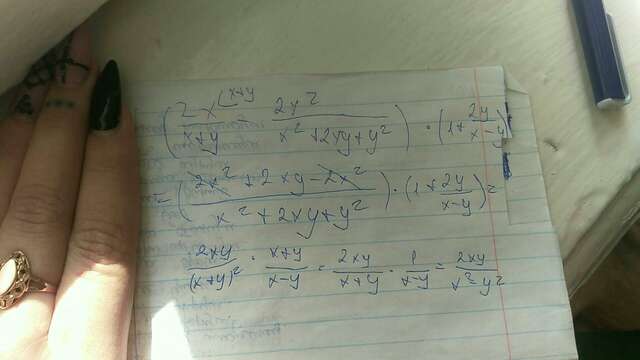 (2x^{\x+y}/(x+y) - 2x²/(x²+2xy+y²)) · (1+2y/(x-y))
= (2x²+2xy-2x²)/(x²+2xy+y²) · (1+2y/(x-y))=
2xy/(x+y)² · (x+y)/(x-y) = 2xy/(x+y) · 1/(x-y) = 2xy/(x²-y²)